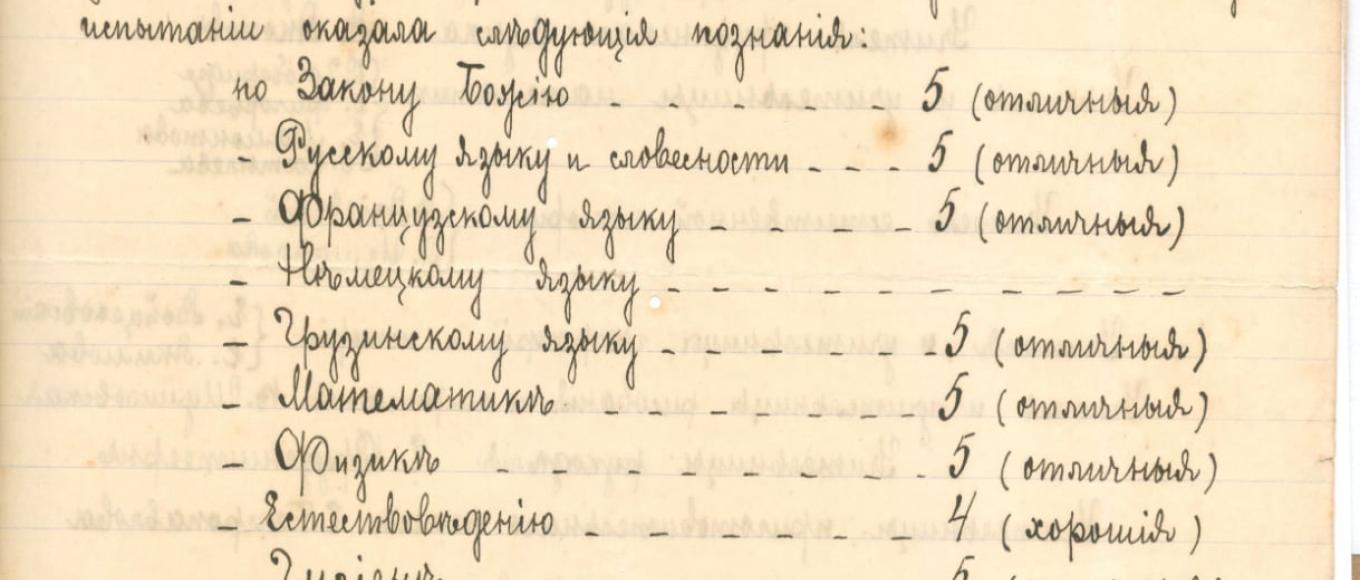 испытаніи оказала слѣдующія познанія:
по Закону Божію - - - - - - 5 (отличныя)
- Русскому языку и словесности - - - 5 (отличныя)
- Французскому языку - - - - - 5 (отличныя)
- Нѣмецкому языку - - - - - - - - - - - -
- Грузинскому языку - - - - - - 5 (отличныя)
- Математикѣ - - - - - - - - 5 (отличныя)
- Физикѣ - - - - - - - 5 (отличныя)
- Естествовѣденію - - - - - - - 4 (хорошія)
Гигіенѣ 5